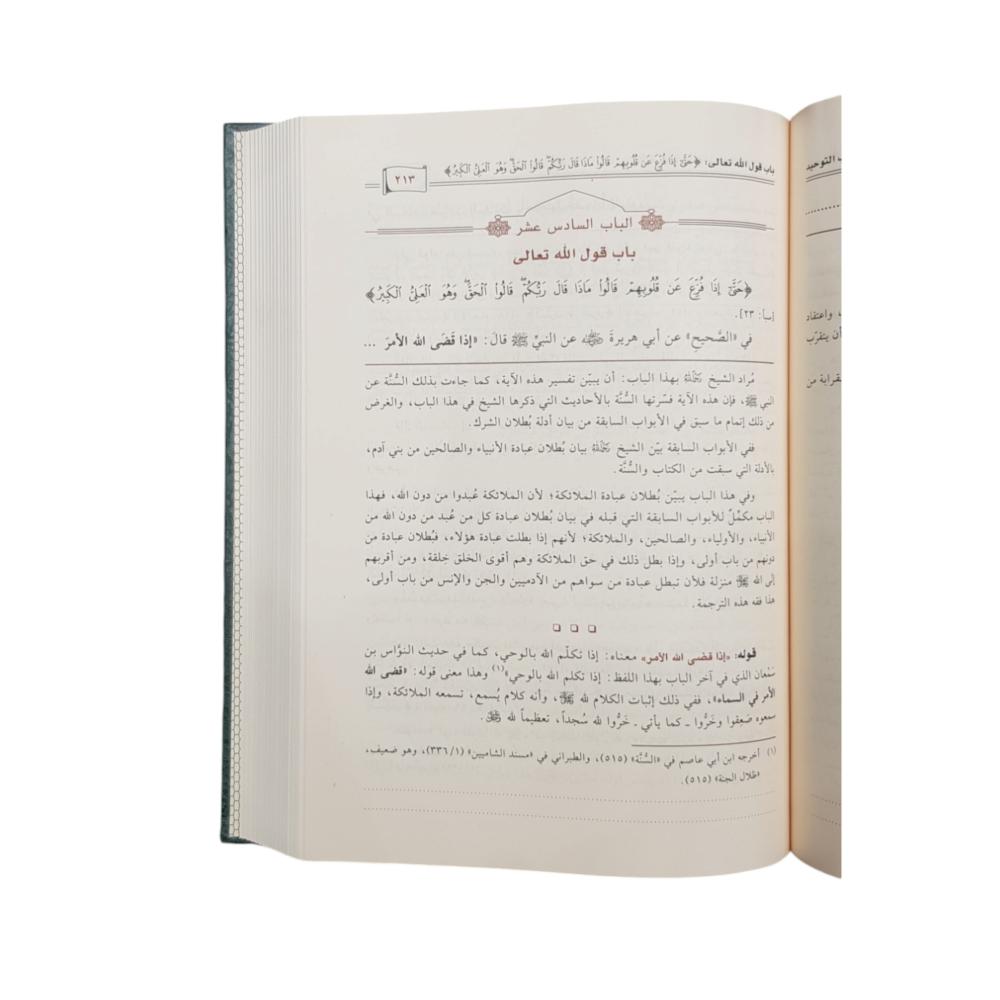 باب قول الله تعالى: ﴿حَتَّىٰٓ إِذَا فُزِّعَ عَن قُلُوبِهِمۡ قَالُواْ مَاذَا قَالَ رَبُّكُمۡۖ قَالُواْ ٱلۡحَقَّۖ وَهُوَ ٱلۡعَلِيُّ ٱلۡكَبِيرُ﴾
٢١٣
الباب السادس عشر
باب قول الله تعالى
﴿حَتَّىٰٓ إِذَا فُزِّعَ عَن قُلُوبِهِمۡ قَالُواْ مَاذَا قَالَ رَبُّكُمۡۖ قَالُواْ ٱلۡحَقَّۖ وَهُوَ ٱلۡعَلِيُّ ٱلۡكَبِيرُ﴾
[سبأ: ٢٣].
في «الصَّحيحِ» عن أبي هريرةَ ﵁ عن النبيِّ ﷺ قالَ: «إذا قَضَى الله الأمرَ ...
مُراد الشيخ ﵀ بهذا الباب: أن يبيّن تفسير هذه الآية، كما جاءت بذلك السُّنَّة عن
النبي ﷺ، فإن هذه الآية فسّرتها السُّنَّة بالأحاديث التي ذكرها الشيخ في هذا الباب، والغرض
من ذلك إتمام ما سبق في الأبواب السابقة من بيان أدلة بُطلان الشرك.
ففي الأبواب السابقة بيّن الشيخ ﵀ بيان بُطلان عبادة الأنبياء والصالحين من بني آدم،
بالأدلة التي سبقت من الكتاب والسُّنَّة.
وفي هذا الباب يبيّن بُطلان عبادة الملائكة؛ لأن الملائكة عُبدوا من دون الله، فهذا
الباب مكمِّلٌ للأبواب السابقة التي قبله في بيان بُطلان عبادة كل من عُبد من دون الله من
الأنبياء، والأولياء، والصالحين، والملائكة؛ لأنهم إذا بطلت عبادة هؤلاء، فبُطلان عبادة من
دونهم من باب أولى، وإذا بطل ذلك في حق الملائكة وهم أقوى الخلق خِلقة، ومن أقربهم
إلى الله ﷻ منزلة فلأن تبطل عبادة من سواهم من الآدميين والجن والإنس من باب أولى،
هذا فقه هذه الترجمة.
قوله: «إذا قضى الله الأمر» معناه: إذا تكلّم الله بالوحي، كما في حديث النوَّاس بن
سَمْعان الذي في آخر الباب بهذا اللفظ: إذا تكلم الله بالوحي»(١) وهذا معنى قوله: «قضى الله
الأمر في السماء»، ففي ذلك إثبات الكلام لله ﷻ، وأنه كلام يُسمع، تسمعه الملائكة، وإذا
سمعوه صَعِقوا وخَرُّوا ـ كما يأتي ـ خَرُّوا لله سُجداً، تعظيماً لله ﷻ.
(١) أخرجه ابن أبي عاصم في «السُّنَّة» (٥١٥)، والطبراني في «مسند الشاميين» (٣٣٦/١)، وهو ضعيف،
«ظلال الجنة» (٥١٥).
ب التوحيد
، واعتقاد
أن يتقرّب
لقرابة من